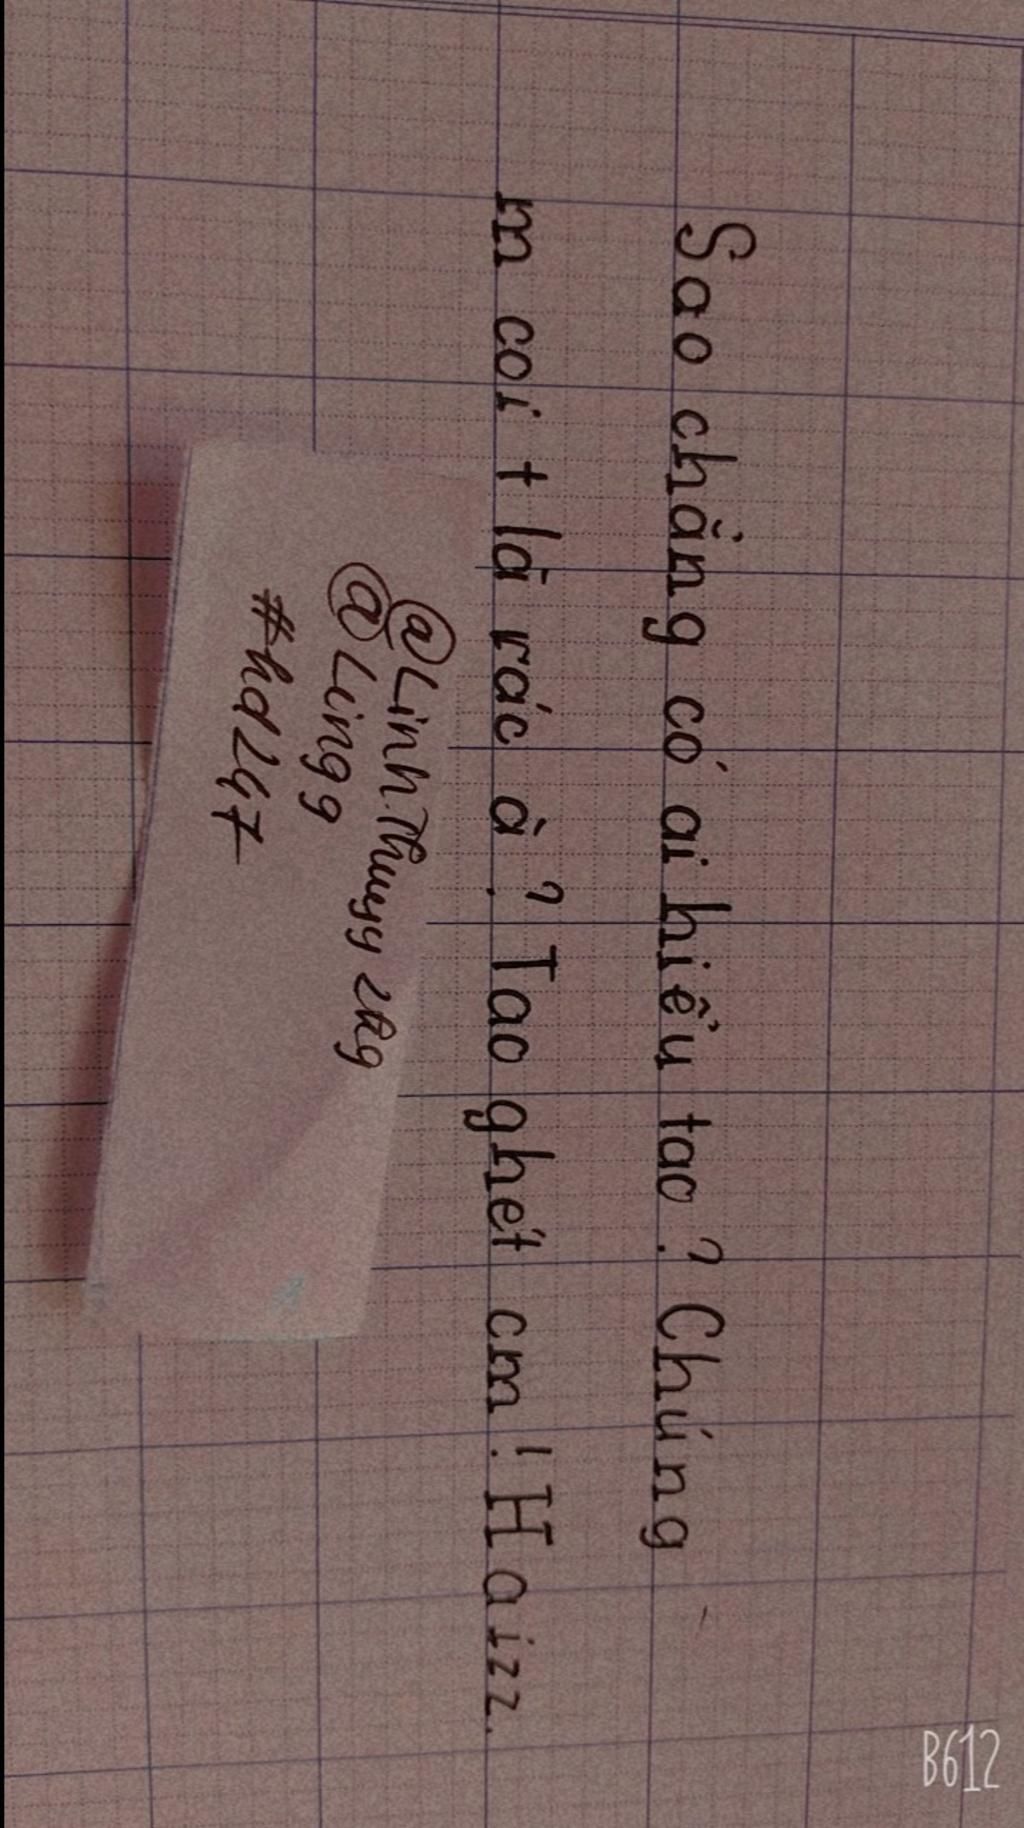 Sao chẳng có ai hiểu tao? Chúng
m coi t là rác à? Tao ghét cm! Haizz.
@LinhThuyy
@Lingg
B612